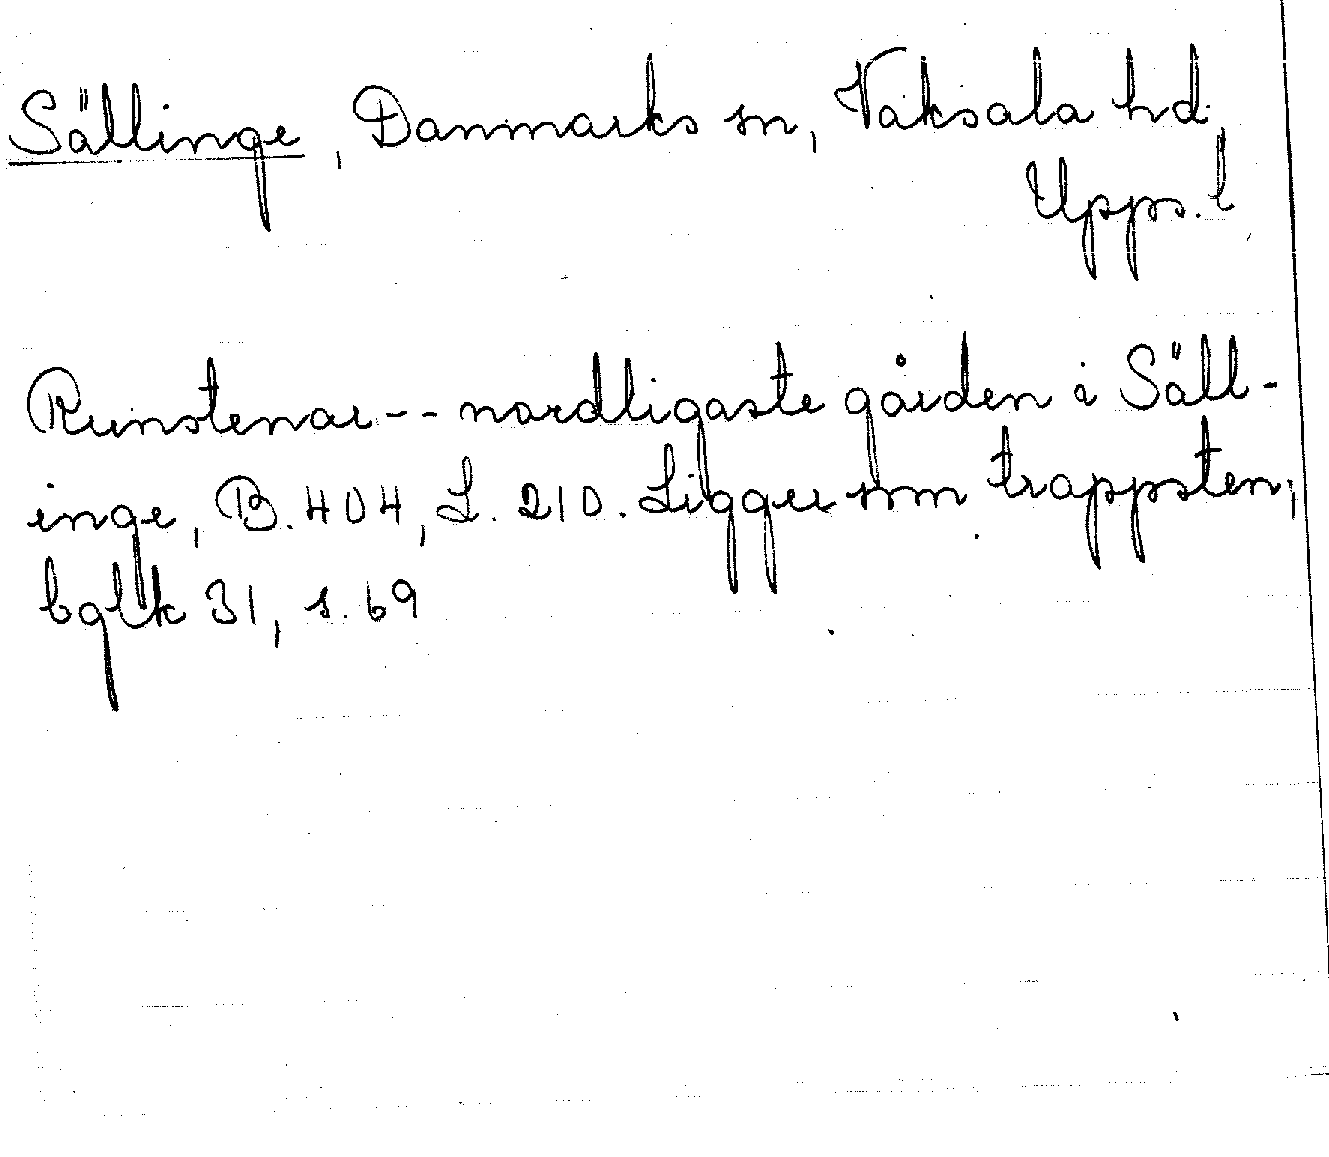 Sällinge, Danmarks sn, Vaksala hd,
Upps. l
Runstenar -- nordligaste gården i Säll-
inge, B. 404, L. 210. Ligger som trappsten;
bglk 31, s. 69